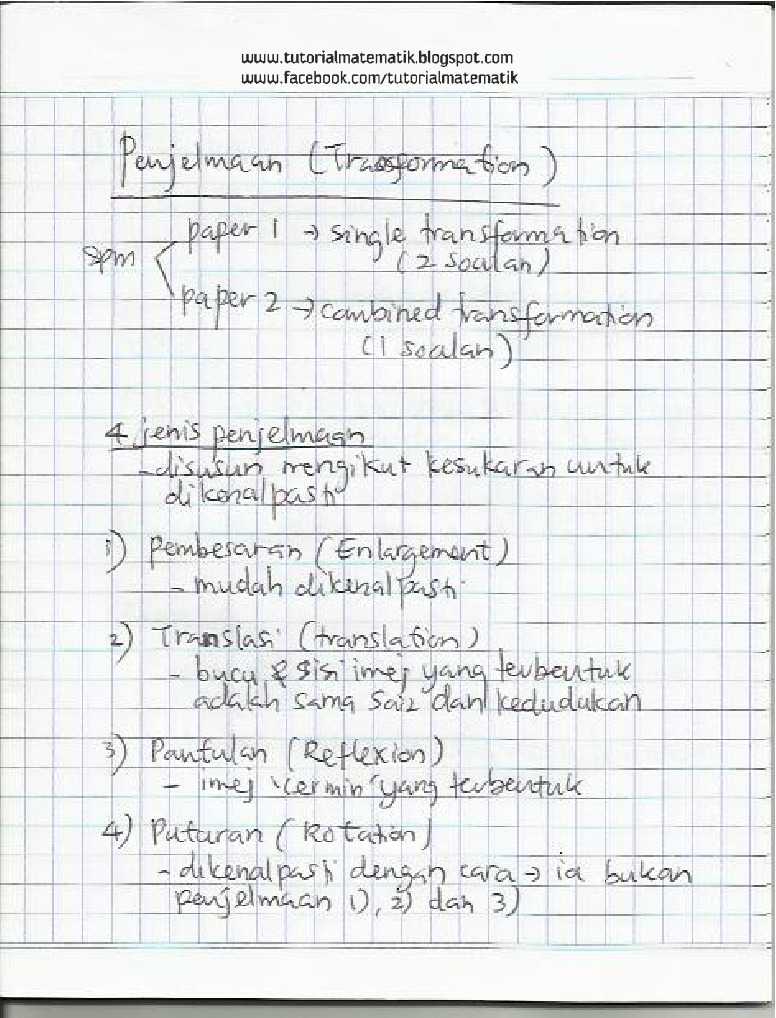 www.tutorialmatematik.blogspot.com
www.facebook.com/tutorialmatematik
Penjelmaan (Transformation)
spm
paper 1 → single transformation
(2 soalan)
paper 2 → combined transformation
(1 soalan)
4 jenis penjelmaan
- disusun mengikut kesukaran untuk
dikenalpasti
1) Pembesaran (Enlargement)
- mudah dikenalpasti
2) Translasi (translation)
- bucu & sisi imej yang terbentuk
adalah sama saiz dan kedudukan
3) Pantulan (Reflexion)
- imej 'cermin' yang terbentuk
4) Putaran (Rotation)
- dikenalpasti dengan cara → ia bukan
penjelmaan 1), 2) dan 3)